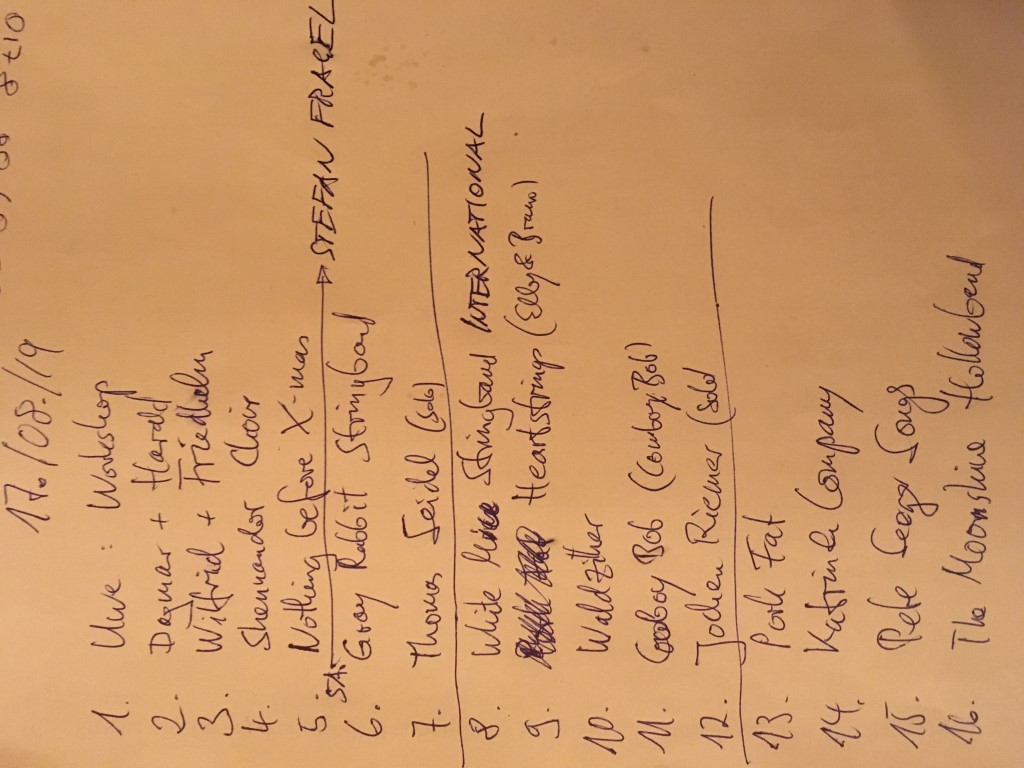 17./08./19
1. Uwe: Workshop
2. Dagmar + Harald
3. Wilfried + Friedhelm
4. Shenandor Choir
5. Nothing before X-mas
SA. → STEFAN FRAGEL
6. Gray Rabbit Stringband
7. Thomas Seidel (solo)
8. White Mice Stringband INTERNATIONAL
9. Heartstrings (Elly & Bruno)
10. Waldzither
11. Cowboy Bob (Cowboy Bob)
12. Jochen Riemer (solo)
13. Pork Fat
14. Katrin & Company
15. Pete Seeger Songs
16. The Moonshine Hollowband